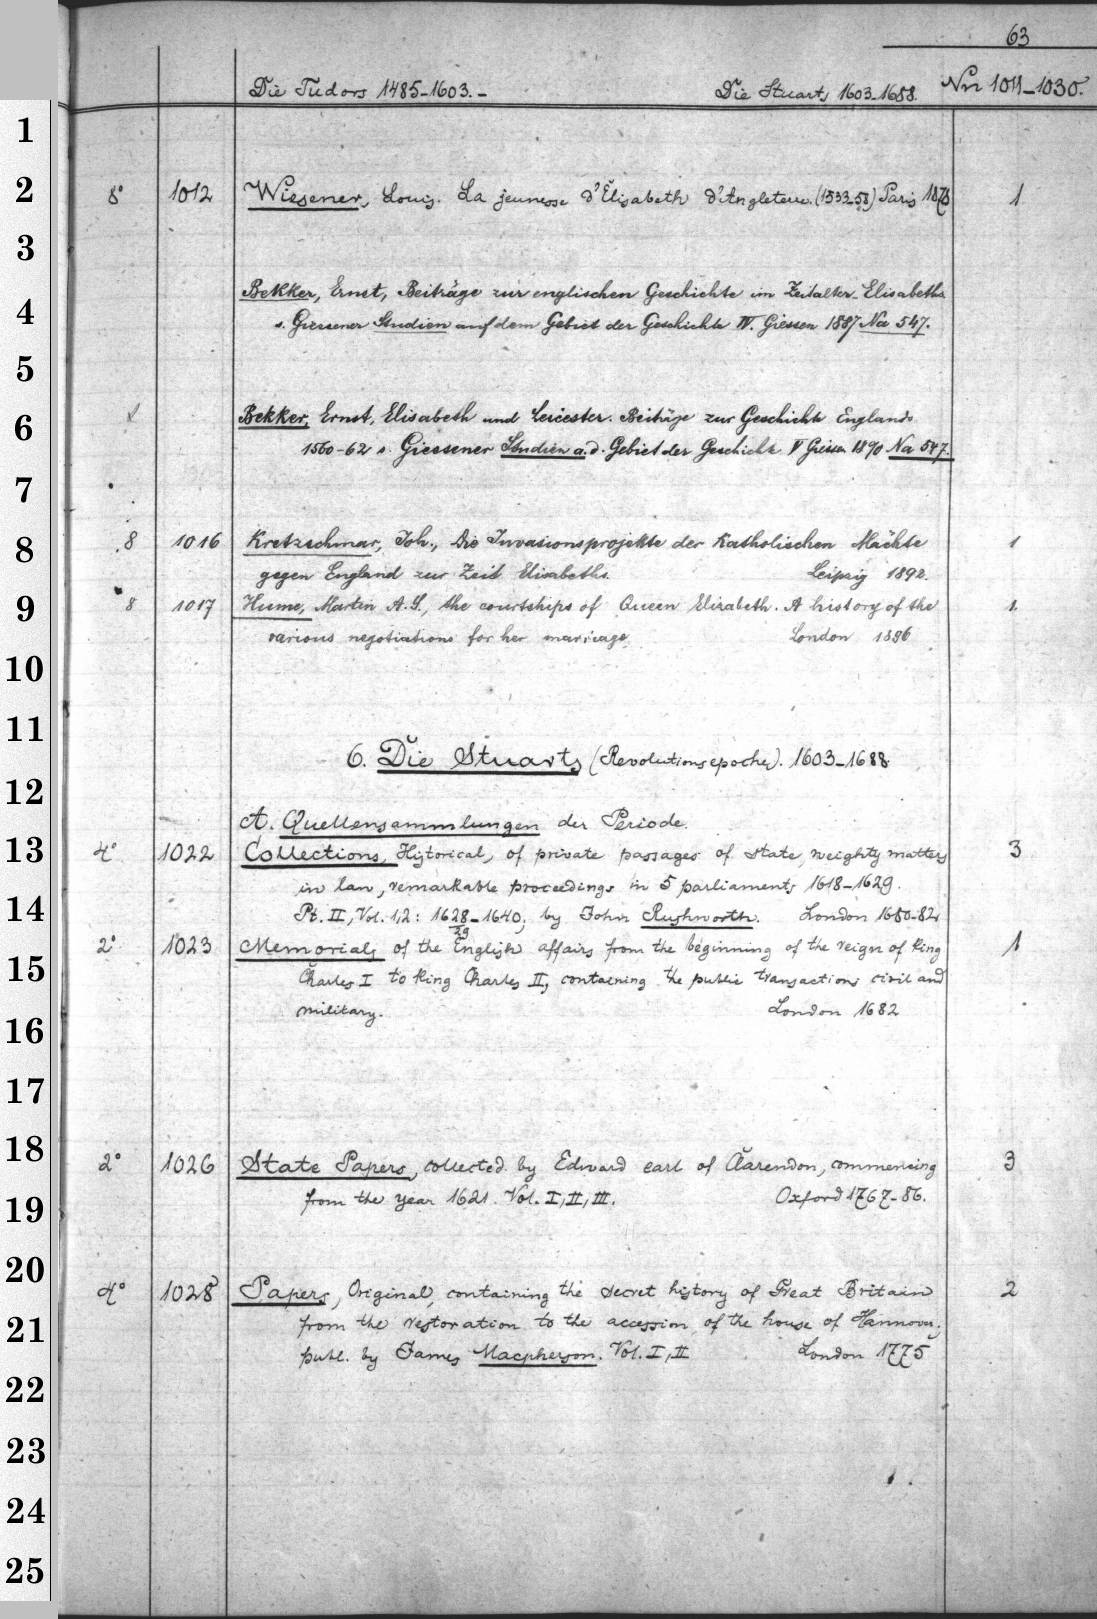 63
Die Tudors 1485-1603.- Die Stuarts 1603-1688. Nrr 1011-1030.
1
2 8° 1012 Wiesener, Louis. La jeunesse d'Élisabeth d'Angleterre. (1533-58) Paris 1878 1
3
Bekker, Ernst, Beiträge zur englischen Geschichte im Zeitalter Elisabeths
4 s. Giessener Studien auf dem Gebiet der Geschichte IV. Giessen 1887 Na 547.
5
6 Bekker, Ernst, Elisabeth und Leicester. Beiträge zur Geschichte Englands
1560-62 s. Giessener Studien a. d. Gebiet der Geschichte V Giessen 1890 Na 547.
7
8 8 1016 Kretzschmar, Joh., Die Invasionsprojekte der katholischen Mächte 1
gegen England zur Zeit Elisabeths. Leipzig 1892.
9 8 1017 Hume, Martin A. S., the courtships of Queen Elizabeth. A history of the 1
various negotiations for her marriage. London 1896
10
11
6. Die Stuarts (Revolutionsepoche). 1603-1688
12
A. Quellensammlungen der Periode.
13 4° 1022 Collections, Historical, of private passages of state, weighty matters 3
in law, remarkable proceedings in 5 parliaments 1618-1629.
14 Pt. II, Vol. 1,2: 1628-1640, by John Rushworth. London 1680-82
29
2° 1023 Memorials of the English affairs from the beginning of the reign of King 1
15 Charles I to King Charles II, containing the public transactions civil and
16 military. London 1682
17
18 2° 1026 State Papers, collected by Edward earl of Clarendon, commencing 3
19 from the year 1621. Vol. I, II, III. Oxford 1767-86.
20
4° 1028 Papers, Original, containing the secret history of Great Britain 2
21 from the restoration to the accession of the house of Hannover,
publ. by James Macpherson. Vol. I, II London 1775
22
23
24
25